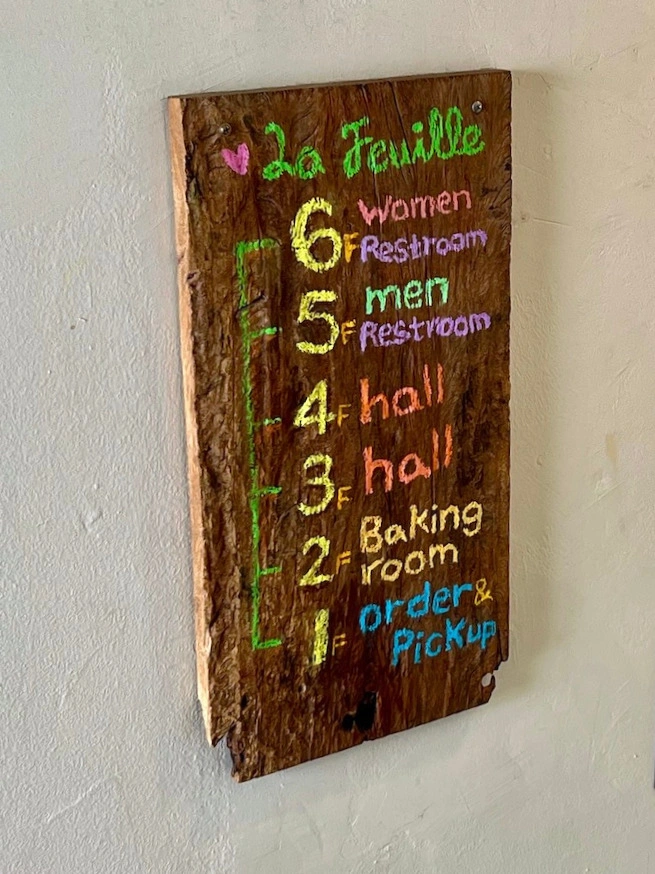 La Feuille
6F Women
Restroom
5F men
Restroom
4F hall
3F hall
2F Baking
room
1F order &
Pickup